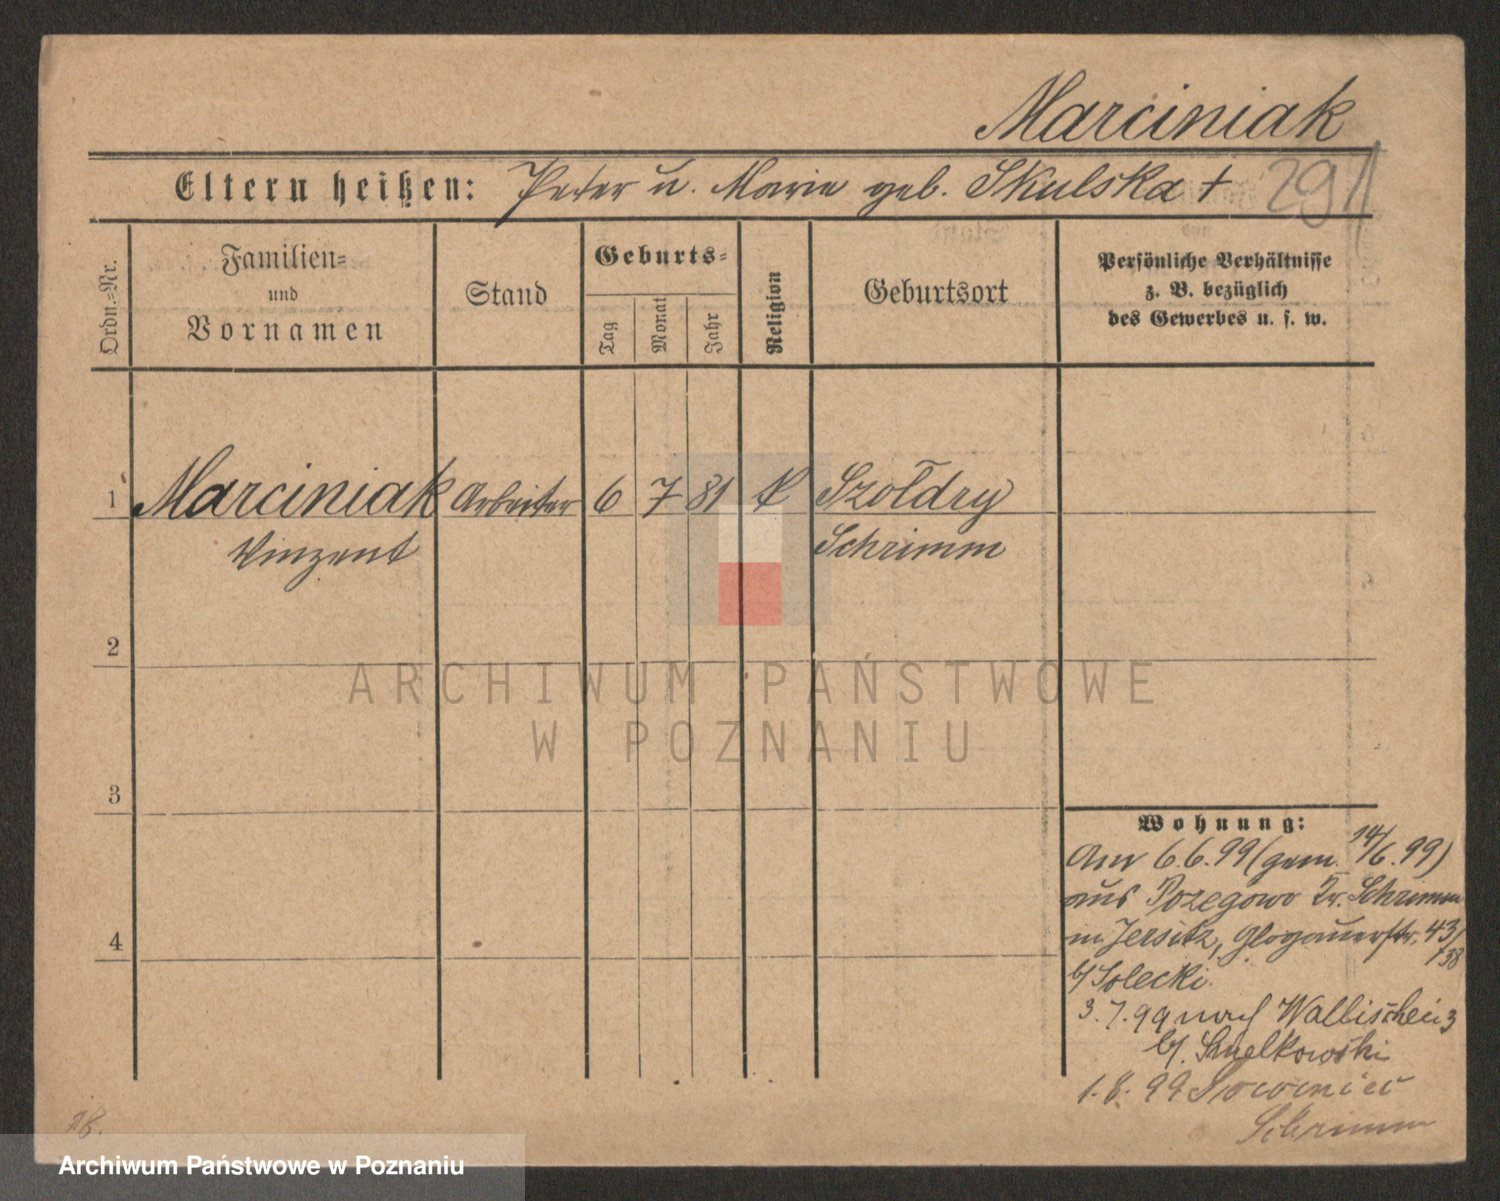 Marciniak
Eltern heißen: Peter u. Marie geb. Skulska + 291
Ordn.-Nr.
Familien-
und
Vornamen
Stand
Geburts-
Tag
Monat
Jahr
Religion
Geburtsort
Persönliche Verhältnisse
z. B. bezüglich
des Gewerbes u. s. w.
1 Marciniak Arbeiter 6 7 81 k Szołdry
Vinzent Schrimm
2
ARCHIWUM PAŃSTWOWE
W POZNANIU
3
4
Wohnung:
Am 6.6.99 (gem. 14/6.99)
aus Pozegowo Kr. Schrimm
n. Jersitz, Glogauerstr. 43/
138
b/ Solecki.
3.7.99 nach Wallischei 3
b/.
1.8.99
Schrimm
Archiwum Państwowe w Poznaniu